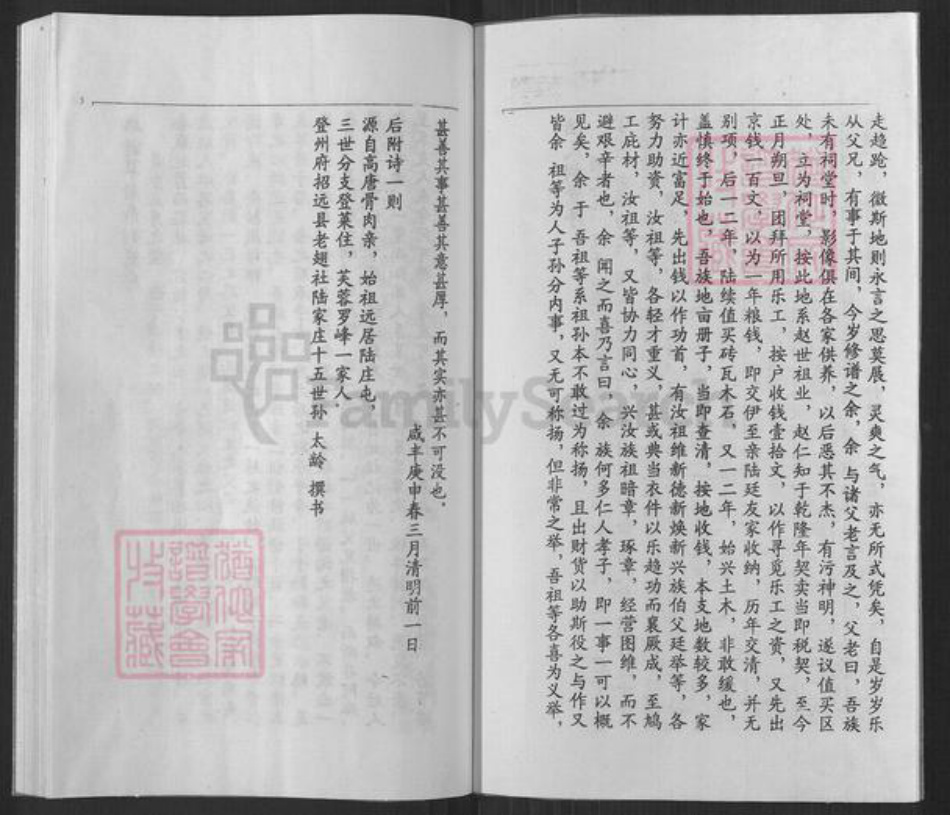 走趋跄，徵斯地则永言之思莫展，灵爽之气，亦无所式凭矣，自是岁岁乐
从父兄，有事于其间，今岁修谱之余，余与诸父老言及之，父老曰，吾族
未有祠堂时，影像俱在各家供养，以后恶其不杰，有污神明，遂议值买区
处，立为祠堂，按此地系赵世祖业，赵仁知于乾隆年契卖当即税契，至今
正月朔旦，团拜所用乐工，按户收钱壹拾文，以作寻觅乐工之资，又先出
京钱一百文，以为一年粮钱，即交伊至亲陆廷友家收纳，历年交清，并无
别项，后一二年，陆续值买砖瓦木石，又一二年，始兴土木，非敢缓也，
盖慎终于始也，吾族地亩册子，当即查清，按地收钱，本支地数较多，家
计亦近富足，先出钱以作功首，有汝祖维新德新焕新兴族伯父廷举等，各
努力助资，汝祖等，各轻才重义，甚或典当衣件以乐趋功而襄厥成，至鸠
工庇材，汝祖等，又皆协力同心，兴汝族祖暗章，琢章，经营图维，而不
避艰辛者也，余闻之而喜乃言曰，余族何多仁人孝子，即一事一可以概
见矣，余于吾祖等系祖孙本不敢过为称扬，且出财货以助斯役之与作又
皆余祖等为人子孙分内事，又无可称扬，但非常之举，吾祖等各喜为义举，
甚善其事甚善其意甚厚，而其实亦甚不可没也．
咸丰庚申春三月清明前一日
后附诗一则
源自高唐骨肉亲，始祖远居陆庄屯，
三世分支登莱住，芙蓉罗峰一家人．
登州府招远县老翅社陆家庄十五世孙 太龄 撰书
FamilySearch